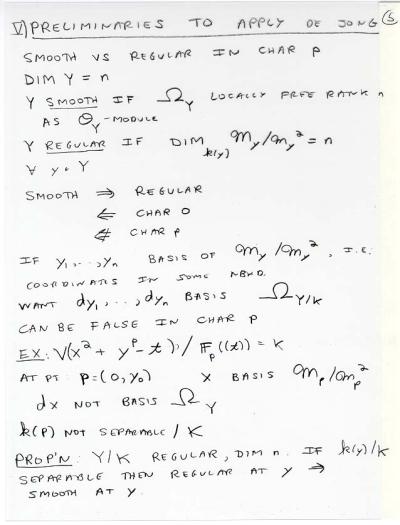 V) PRELIMINARIES TO APPLY DE JONG (5
SMOOTH VS REGULAR IN CHAR P
DIM Y = n
Y SMOOTH IF Ω_Y LOCALLY FREE RANK n
AS O_Y-MODULE
Y REGULAR IF DIM_{k(y)} m_y/m_y² = n
∀ y ∈ Y
SMOOTH ⇒ REGULAR
⇐ CHAR 0
⇍ CHAR P
IF y₁,..,yₙ BASIS OF m_y/m_y², I.E.
COORDINATES IN SOME NBHD.
WANT dy₁,..,dyₙ BASIS Ω_{Y/K}
CAN BE FALSE IN CHAR P
EX: V(x² + y^p - t)/ F_p((t)) = K
AT PT: P=(0,y₀) X BASIS m_p/m_p²
dx NOT BASIS Ω_Y
k(P) NOT SEPARABLE / K
PROP'N: Y/K REGULAR, DIM n. IF k(y)/K
SEPARABLE THEN REGULAR AT y ⇒
SMOOTH AT y.